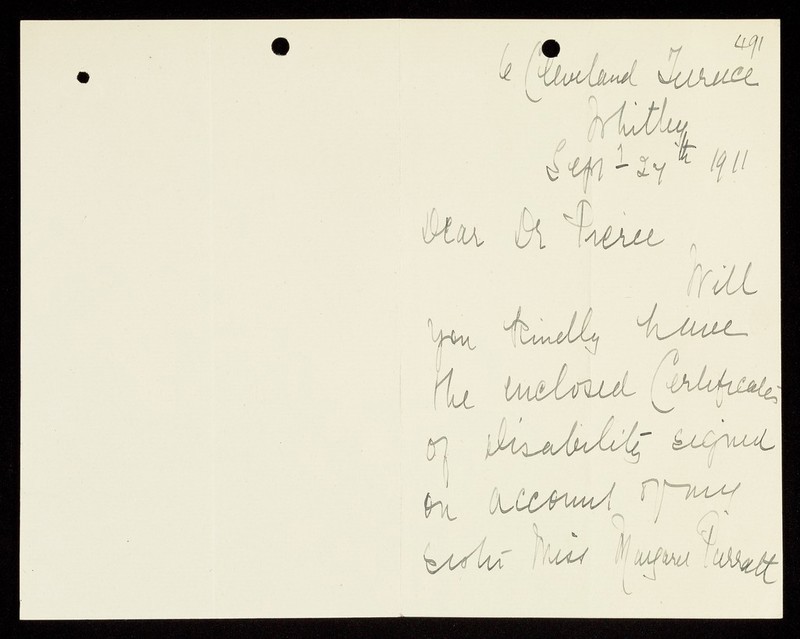 491
6 Cleveland Terrace
Whitley
Sept 27th 1911
Dear Dr Pierce
Will
you kindly have
the enclosed Certificates
of Disability signed
on account of my
sister Miss Margaret Parratt